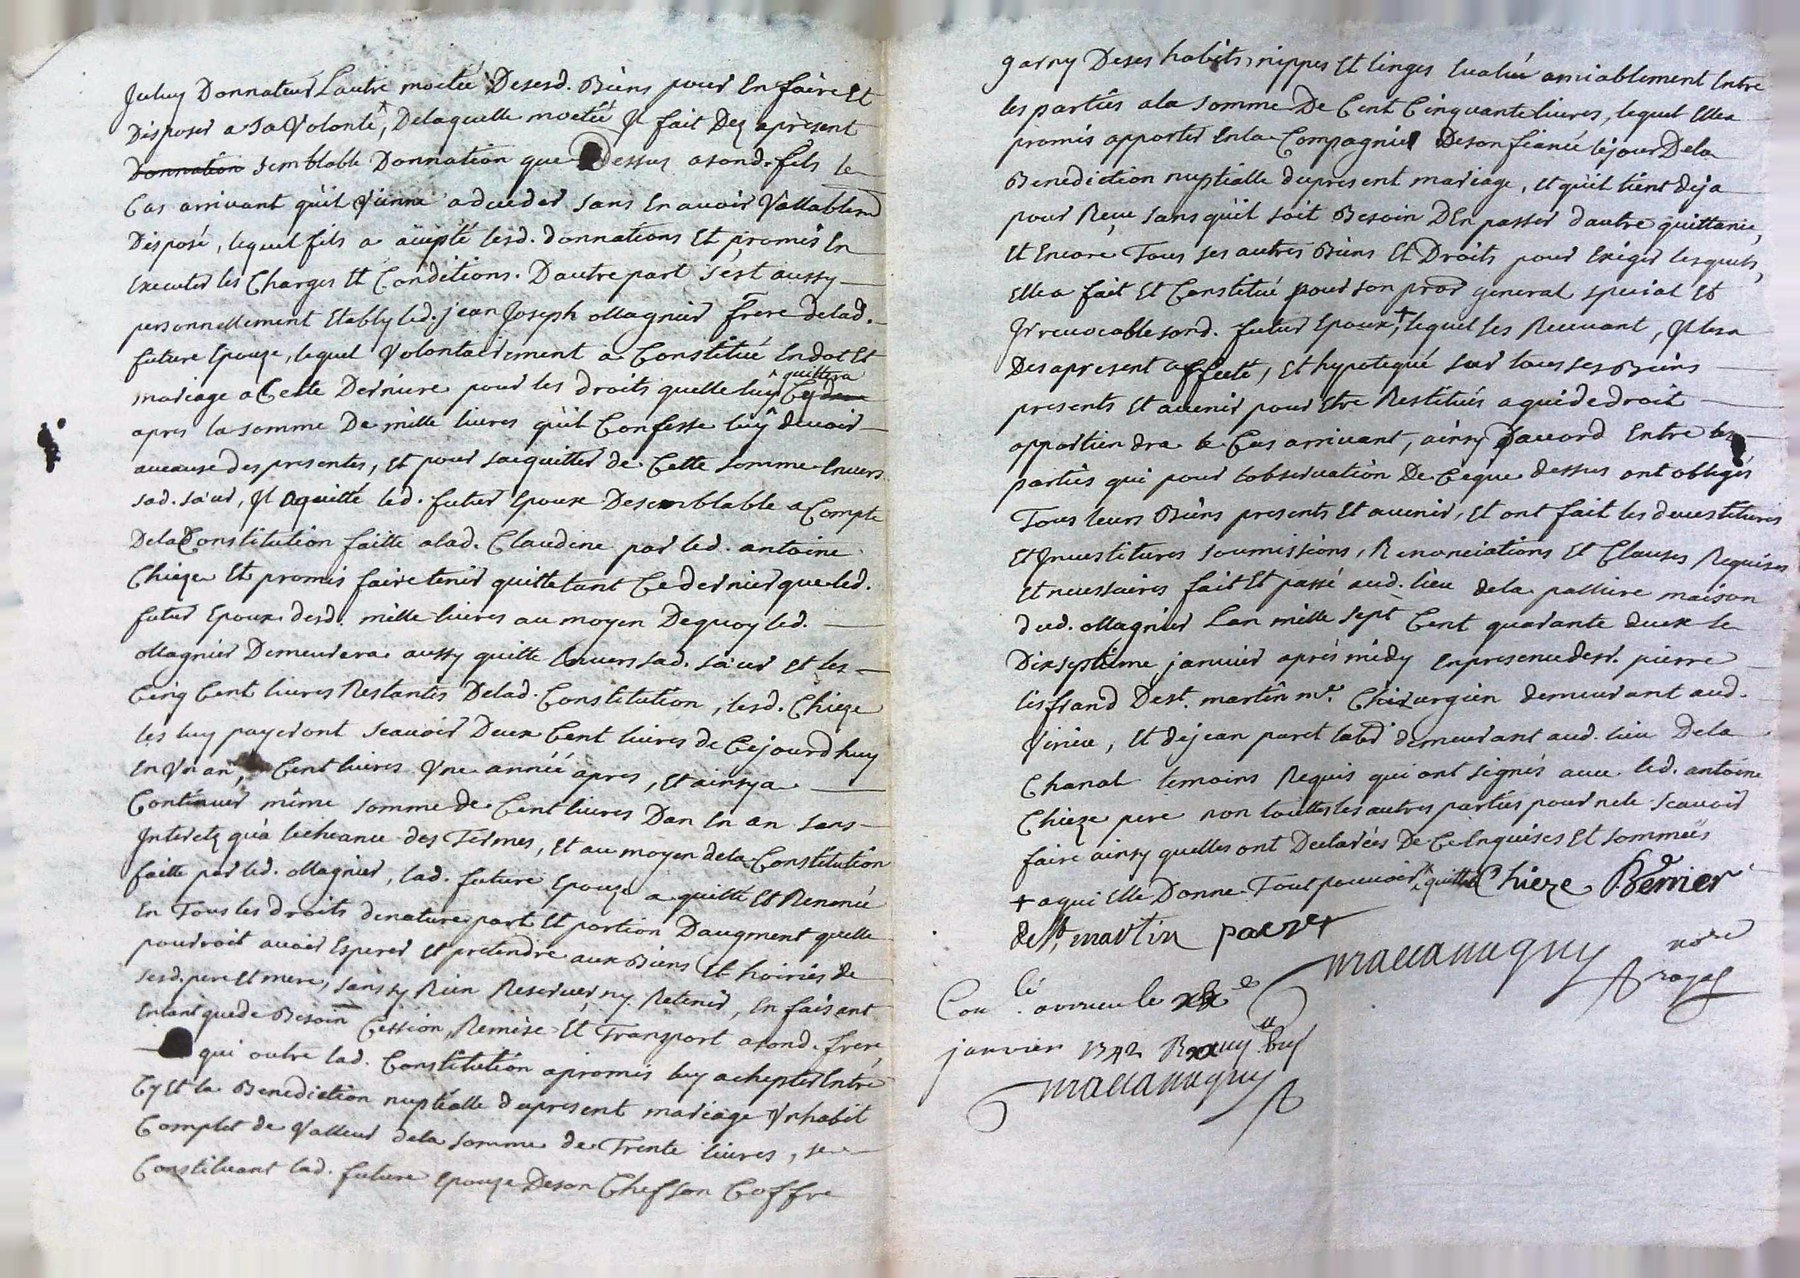 Iceluy Donnateur Lautre moetié Desesd. Biens pour En faire Et
Disposer a Sa Volonté, Delaquelle moetié Il fait Dez apresent
Donnation semblable Donnation que Dessus asond. fils le
Cas arrivant quil Vienne adeceder sans En avoir Vallablemt
Disposé, lequel fils a accepté lesd. donnations Et promis En
Executer les Charges Et Conditions. Dautre part s'est aussy
personnellement Etably led. jean Joseph Magnier frere delad.
future Epouze, lequel Volontairement a Constitué Endot Et
mariage a Cette Derniere pour les droits quelle luy quittera Cy
apres la somme De mille livres quil Confesse luy devoir
acause des presentes, Et pour sacquitter de Cette somme Envers
sad. sœur, Il aquitté led. futur Epoux Desemblable a Compte
Dela Constitution faitte alad. Claudene par led. antoine
Chieze Et promis faire tenir quitte tant Ce dernier que led.
futur Epoux desd. mille livres au moyen Dequoy led.
Magnier Demeurera aussy quitte Envers sad. sœur et les
Cinq Cent livres Restantes Delad. Constitution, lesd. Chieze
les luy payeront scavoir Deux Cent livres de Cejourdhuy
En Vn an, Cent livres Vne année apres, Et ainsy a
Continuer même somme de Cent livres Dan En an sans
Interetz qu'a lecheance des Termes, Et au moyen dela Constitution
faitte par led. Magnier, lad. future Epouze a quitté Et Renoncé
En Tous les droits denature part Et portion Daugment quelle
pourroit avoir Esperer Et pretendre aux Biens Et hoiries de
sesd. pere et mere, sans y Rien Reserver ny Retenir, En faisant
Entant quede Besoin Cession, Remise Et Transport asond. frere,
qui outre lad. Constitution apromis luy achepter Entre
Cy Et la Benediction nuptialle dupresent mariage Vnhabit
Complet de Valleur dela somme de Trente livres, se
Constituant lad. future Epouze Deson Chef son Coffre
garny Deses habits, nippes Et linges Evalué amiablement Entre
les parties ala somme De Cent Cinquante livres, lequel Ellea
promis apporter Enla Compagnie Deson fiancé lejour Dela
Benediction nuptialle dupresent mariage, Et quil tient deja
pour Reçu sans quil soit Besoin DEn passer dautre quittance,
Et Encore Tous ses autres Biens Et Droits pour Exiger lesquels,
Ellea fait Et Constitué pour son procr general special Et
Irrevocable sond. futur Epoux +, lequel les Recevant, Il lesa
Des apresent affecté, Et hypotequé sur tous ses Biens
presents Et avenir pour Etre Restitués aquidedroit
appartiendra le Cas arrivant, ainsy Daccord Entre les
parties qui pour lobservation De Ceque dessus ont obligés
Tous leurs Biens presents Et avenir, Et ont fait les devestitures
Et Investitures soumissions, Renonciations Et Clauses Requises
Et necessaires fait Et passé aud. lieu dela palliere maison
dud. Magnier Lan mille sept Cent quarante deux le
Dixseptieme janvier aprés midy Enpresence de sr. pierre
lisfrand De st. martin me. Chirurgien demeurant aud.
Virieu, Et dejean paret demeurant aud. lieu Dela
Chanal temoins Requis qui ont signés avec led. antoine
Chieze pere non touttes les autres parties pour nele scavoir
faire ainsy quelles ont Declarées De Ce Enquises Et sommées
+ aqui Elle Donne Tout pouvoir Chieze
de St. martin paret
not.re
royal
janvier 1742